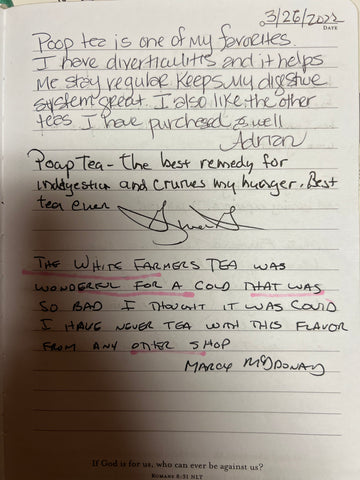 3/26/2022
DATE
Poop tea is one of my favorites.
I have diverticulitis and it helps
me stay regular. Keeps my digestive
system great. I also like the other
teas I have purchased as well
Adrian
Poop Tea - the best remedy for
inddgestion and cruves my hunger. Best
tea ever
THE WHITE FARMERS TEA WAS
WONDERFUL FOR A COLD THAT WAS
SO BAD I THOUGHT IT WAS COVID
I HAVE NEVER TEA WITH THIS FLAVOR
FROM ANY OTHER SHOP
MARCY MCDONAY
If God is for us, who can ever be against us?
ROMANS 8:31 NLT